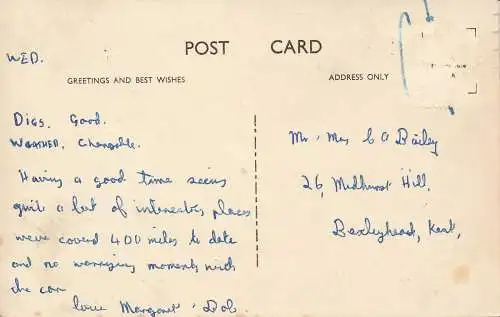 WED.
POST CARD
GREETINGS AND BEST WISHES
ADDRESS ONLY
DIGS. Good.
WEATHER. Changable.
Having a good time seeing
quit a lot of interesting places
weve coverd 400 miles to date
and no worrying moments with
the car
love Margaret & Bob.
Mr & Mrs C A Bailey
26, Midhurst Hill.
Bexleyheath, Kent,